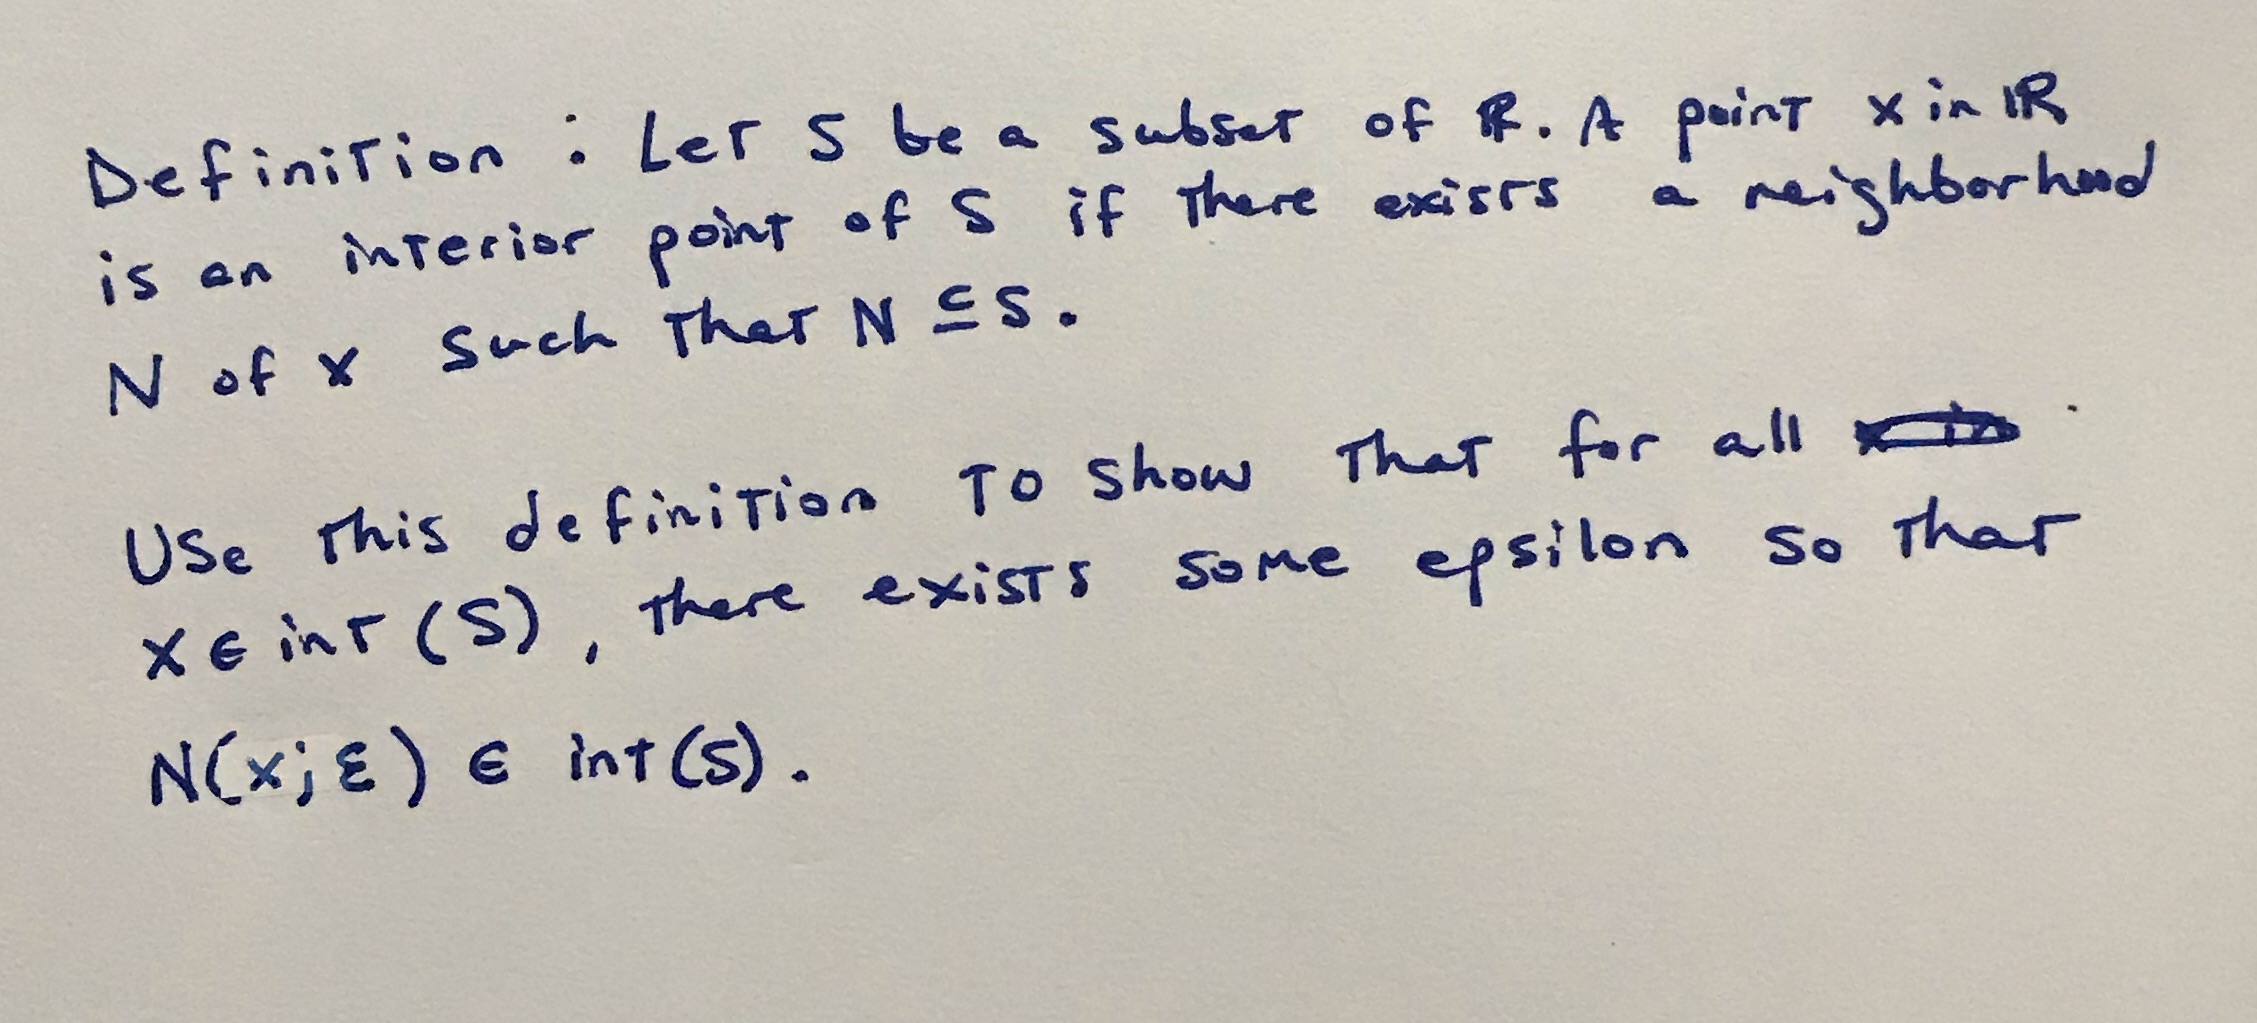 Definition : Let S be a subset of ℝ. A point x in ℝ
is an interior point of S if there exists a neighborhood
N of x such that N ⊆ S.
Use this definition to show that for all
x ∈ int (S), there exists some epsilon so that
N(x; ε) ∈ int (S).